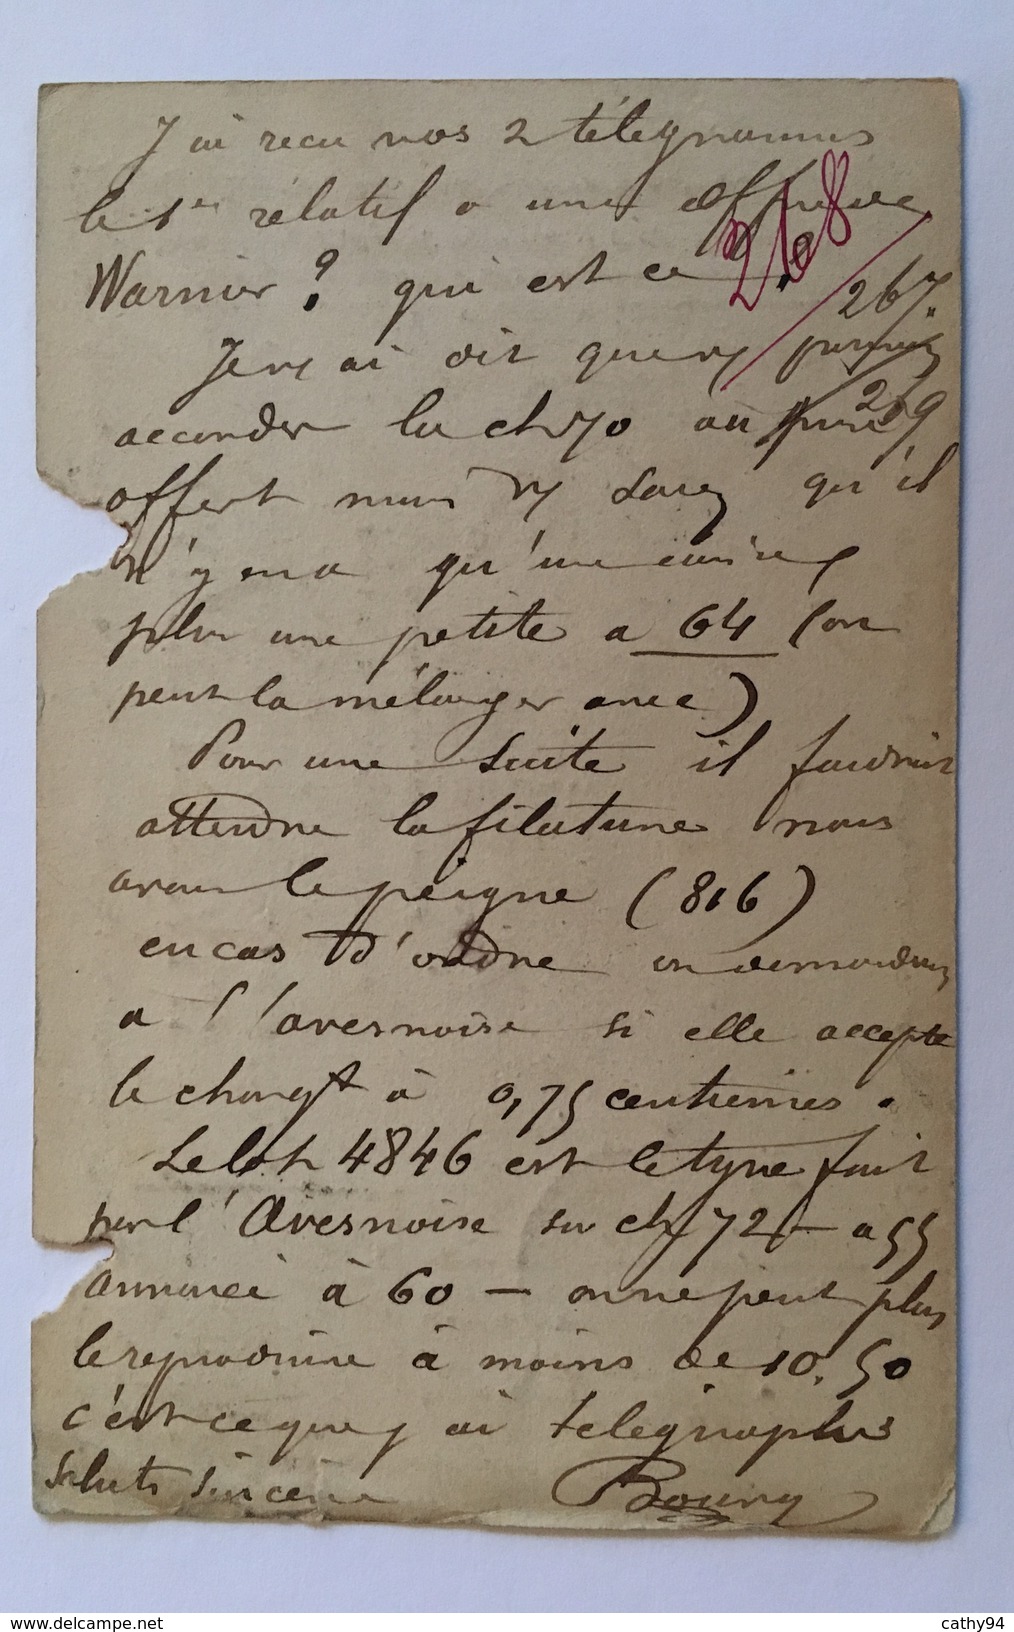 J'ai recu vos 2 télégrammes
le 1er rélatif a une
Warnier ? qui est ce ?
268
267.
Je vs ai dit que vs
269
accorder la ch 70 au
offert mais vs savez qu'il
n'y en a qu'une
plus une petite a 64 (on
peut la mélanger avec)
Pour une suite il faudrait
attendre la filature nous
avons le peigne (816)
en cas d'ordre on demandera
a l'avesnoise si elle accepte
le changt à 0,75 centiemes.
Le lot 4846 est le type fait
par l'Avesnoise su ch 72 - a 55
annoncé à 60 - on ne peut plus
le reproduire à moins de 10.50
c'est ce que j ai telegraphié
saluts sincères
Boury
www.delcampe.net
cathy94